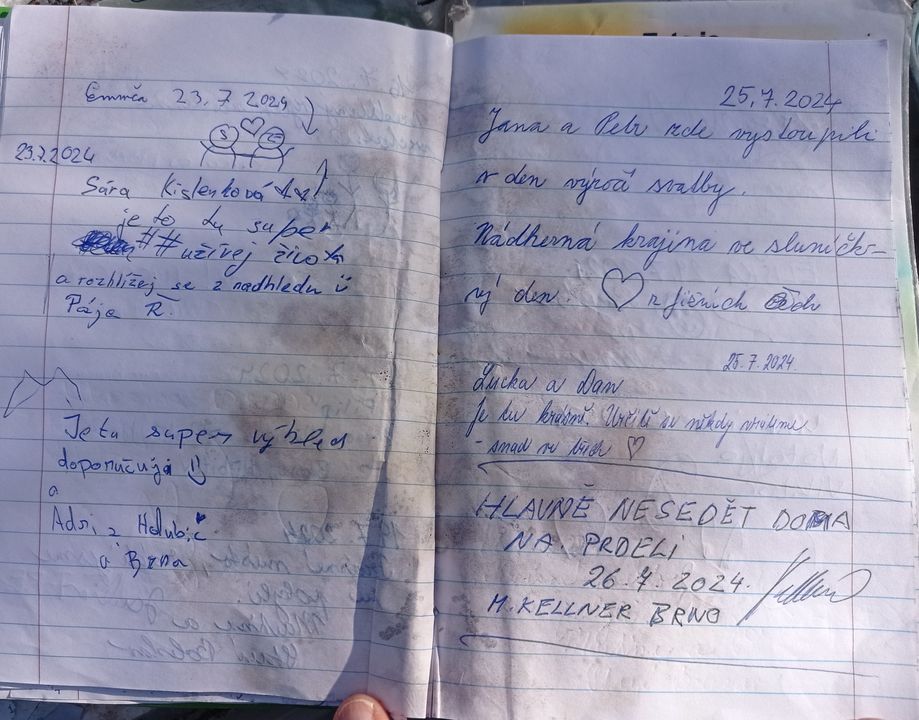 Emmča 23.7 2024
23.7.2024
Sára Kislenková
je to tu super
## užívej život
a rozhlížej se z nadhledu
Pája Ř.
Je tu super výhled
doporučuji
a
Adri z Holubic
a Brna
25.7.2024
Jana a Petr zde vystoupili
v den výročí svatby.
Nádherná krajina ve sluníčko-
vý den. z jižních Čech
25.7.2024.
Lucka a Dan
Je tu krásně. Určitě se někdy vrátíme
- snad ve třech
HLAVNĚ NESEDĚT DOMA
NA PRDELI
26.7 2024.
M. KELLNER BRNO